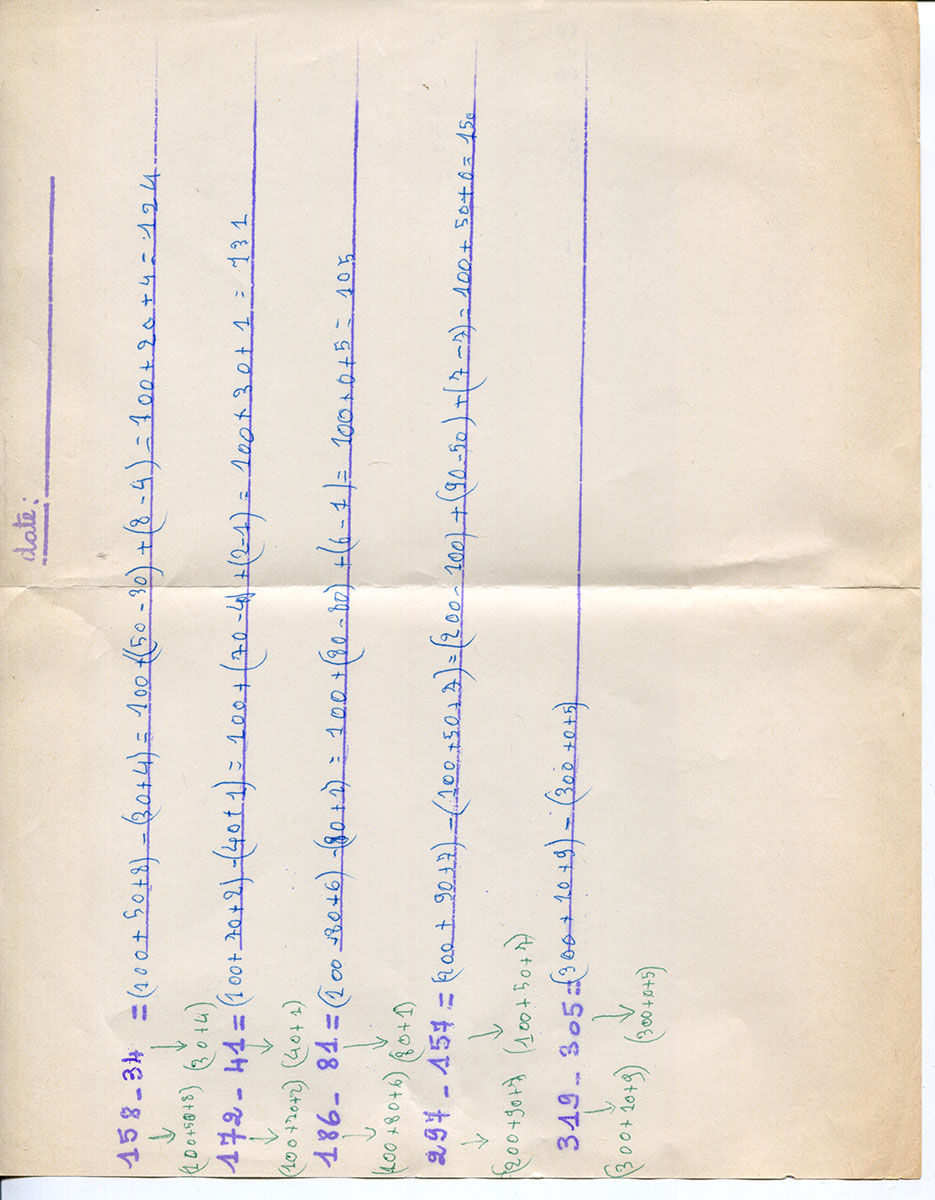 date:
158-34 = (100+50+8)-(30+4)=100+(50-30)+(8-4)=100+20+4=124
↓ ↓
(100+50+8) (30+4)
172-41=(100+70+2)-(40+1)=100+(70-40)+(2-1)=100+30+1=131
↓ ↓
(100+70+2) (40+1)
186-81=(100+80+6)-(80+1)=100+(80-80)+(6-1)=100+0+5=105
↓ ↓
(100+80+6) (80+1)
297-157=(200+90+7)-(100+50+7)=(200-100)+(90-50)+(7-7)=100+50+0=150
↓ ↓
(200+90+7 (100+50+7)
319-305=(300+10+9)-(300+0+5)
↓ ↓
(300+10+9) (300+0+5)